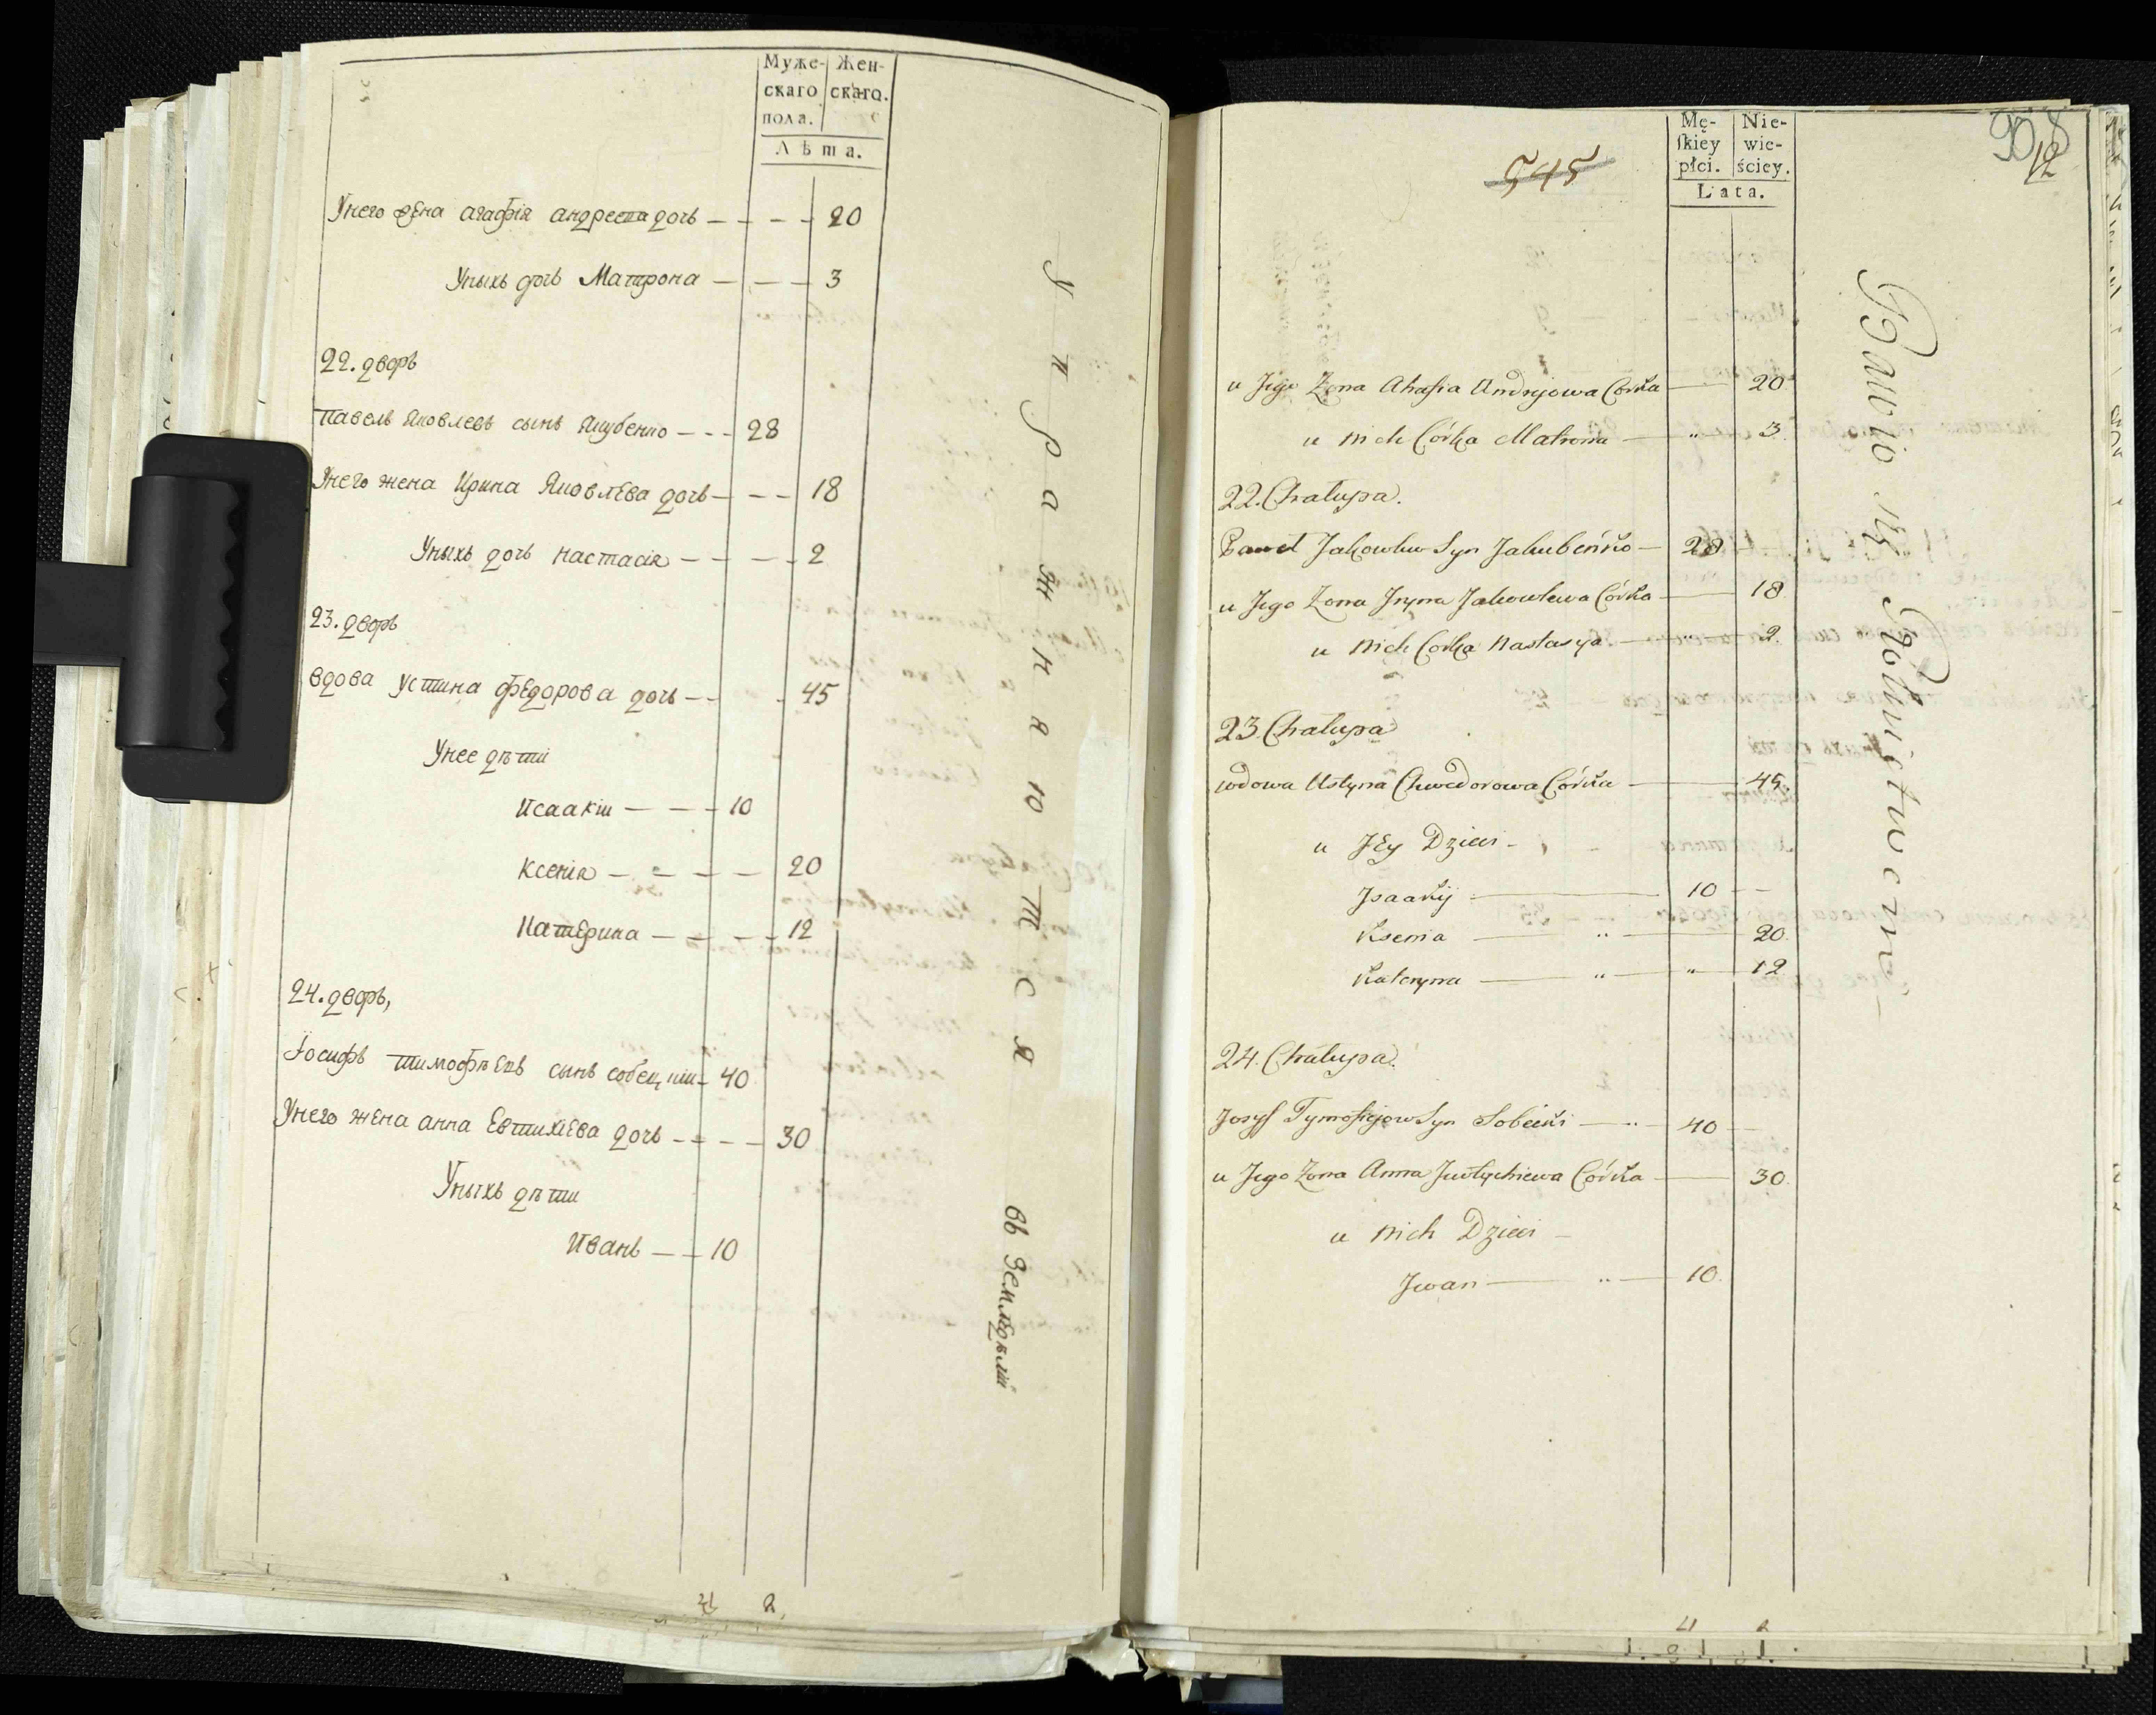 Муже-
скаго
пола.
Жен-
скаго.
Лѣта.
Унего жена агафія андреева дочь — — — — 20
Уныхъ дочь Матрона — — — 3
22. дворъ
павелъ Яковлевъ сынъ Якубенко — — - 28
Унего жена Ирина Яковлева дочь — — - 18
Уныхъ дочь настасія — — — - 2
23. дворъ
вдова устина федорова дочь — - - 45
Унее дѣти
Исаакій — — — 10
ксенія — — — — 20
Катерина — — — - 12
24. дворъ,
Іосифъ тимофѣевъ сынъ собецкій — 40
Унего жена анна Евтихіева дочь — — — - 30
Уныхъ дѣти
Иванъ — — 10
4 2
Упражняются
въ земледѣліи
908
12
545
Mę-
ſkiey
płci.
Nie-
wie-
ściey.
Lata.
u Jego Zona Ahafia Andrejowa Córka — 20
u nich Córka Matrona — " 3.
22. Chałupa.
Paweł Jakowlew Syn Jakubeńko — 28
u Jego Zona Iryna Jakowlewa Córka — 18
u nich Córka Nastasya — " 2.
23. Chałupa
wdowa Ustyna Chwedorowa Córka — 45.
u Jey Dzieci -
Jsaakij — 10 —
Ksenia — " — 20.
Kateryna — " — " — 12
24. Chałupa.
Josyf Tymofiejow Syn Sobecki — " — 40 —
u Jego Zona Anna Jewtychiewa Córka — 30.
u nich Dzieci —
Jwan — " — 10.
4 2
Bawio się Rolnictwem